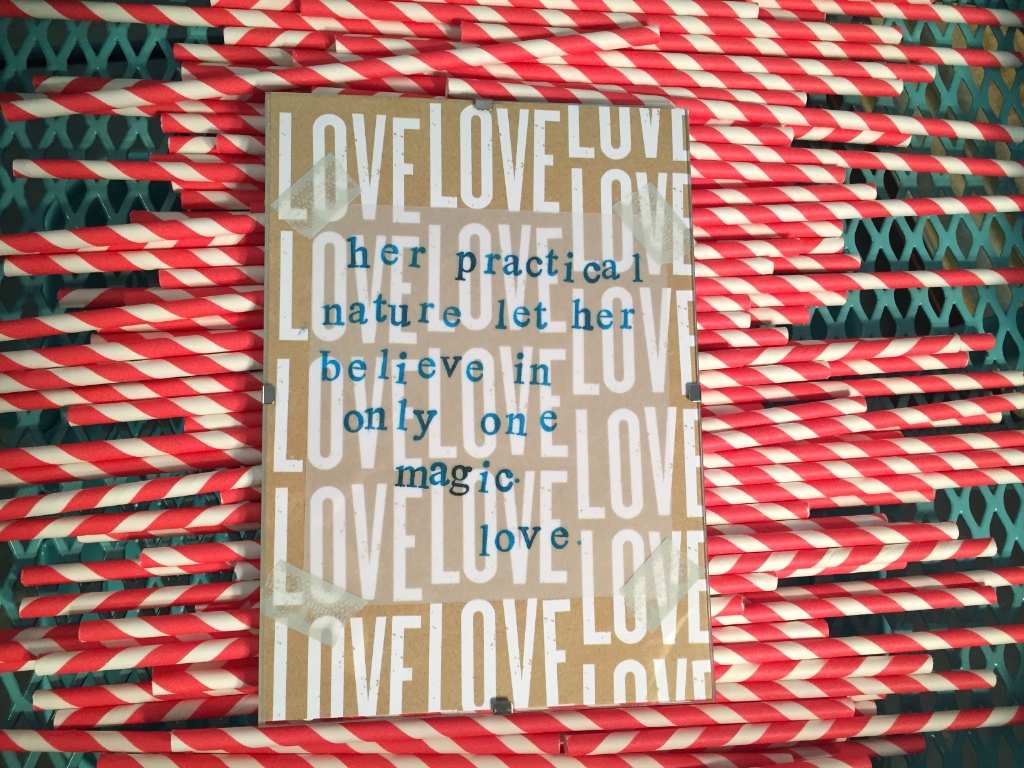 LOVE LOVE LOVE
LOVE LOVE LOVE
her practical
nature let her
believe in
only one
magic.
love.
LOVE LOVE LOVE
LOVE LOVE LOVE
LOVE LOVE LOVE
LOVE LOVE LOVE